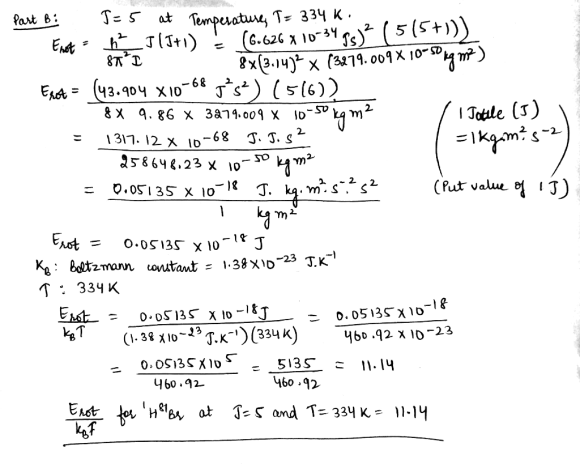 Part B: J = 5 at Temperature, T = 334 K.
Erot = h²/8π²I J(J+1) = (6.626 x 10-34 Js)² (5(5+1)) / 8x(3.14)² x (3279.009 x 10-50 kg m²)
Erot = (43.904 x10-68 J²s²) (5(6)) / 8 x 9.86 x 3279.009 x 10-50 kg m²
= 1317.12 x 10-68 J.J.s² / 258648.23 x 10-50 kg m²
(1 Joule (J) = 1 kg.m².s-2)
= 0.05135 x 10-18 J. kg.m².s-².s² / 1 kg m²
(Put value of 1 J)
Erot = 0.05135 x 10-18 J
KB : Boltzmann constant = 1.38x10-23 J.K-1
T : 334 K
Erot/kBT = 0.05135 x 10-18 J / (1.38 x10-23 J.K-1)(334K) = 0.05135 x10-18 / 460.92 x 10-23
= 0.05135 x10 5 / 460.92 = 5135 / 460.92 = 11.14
Erot/kBT for ¹H⁸¹Br at J=5 and T=334 K = 11.14